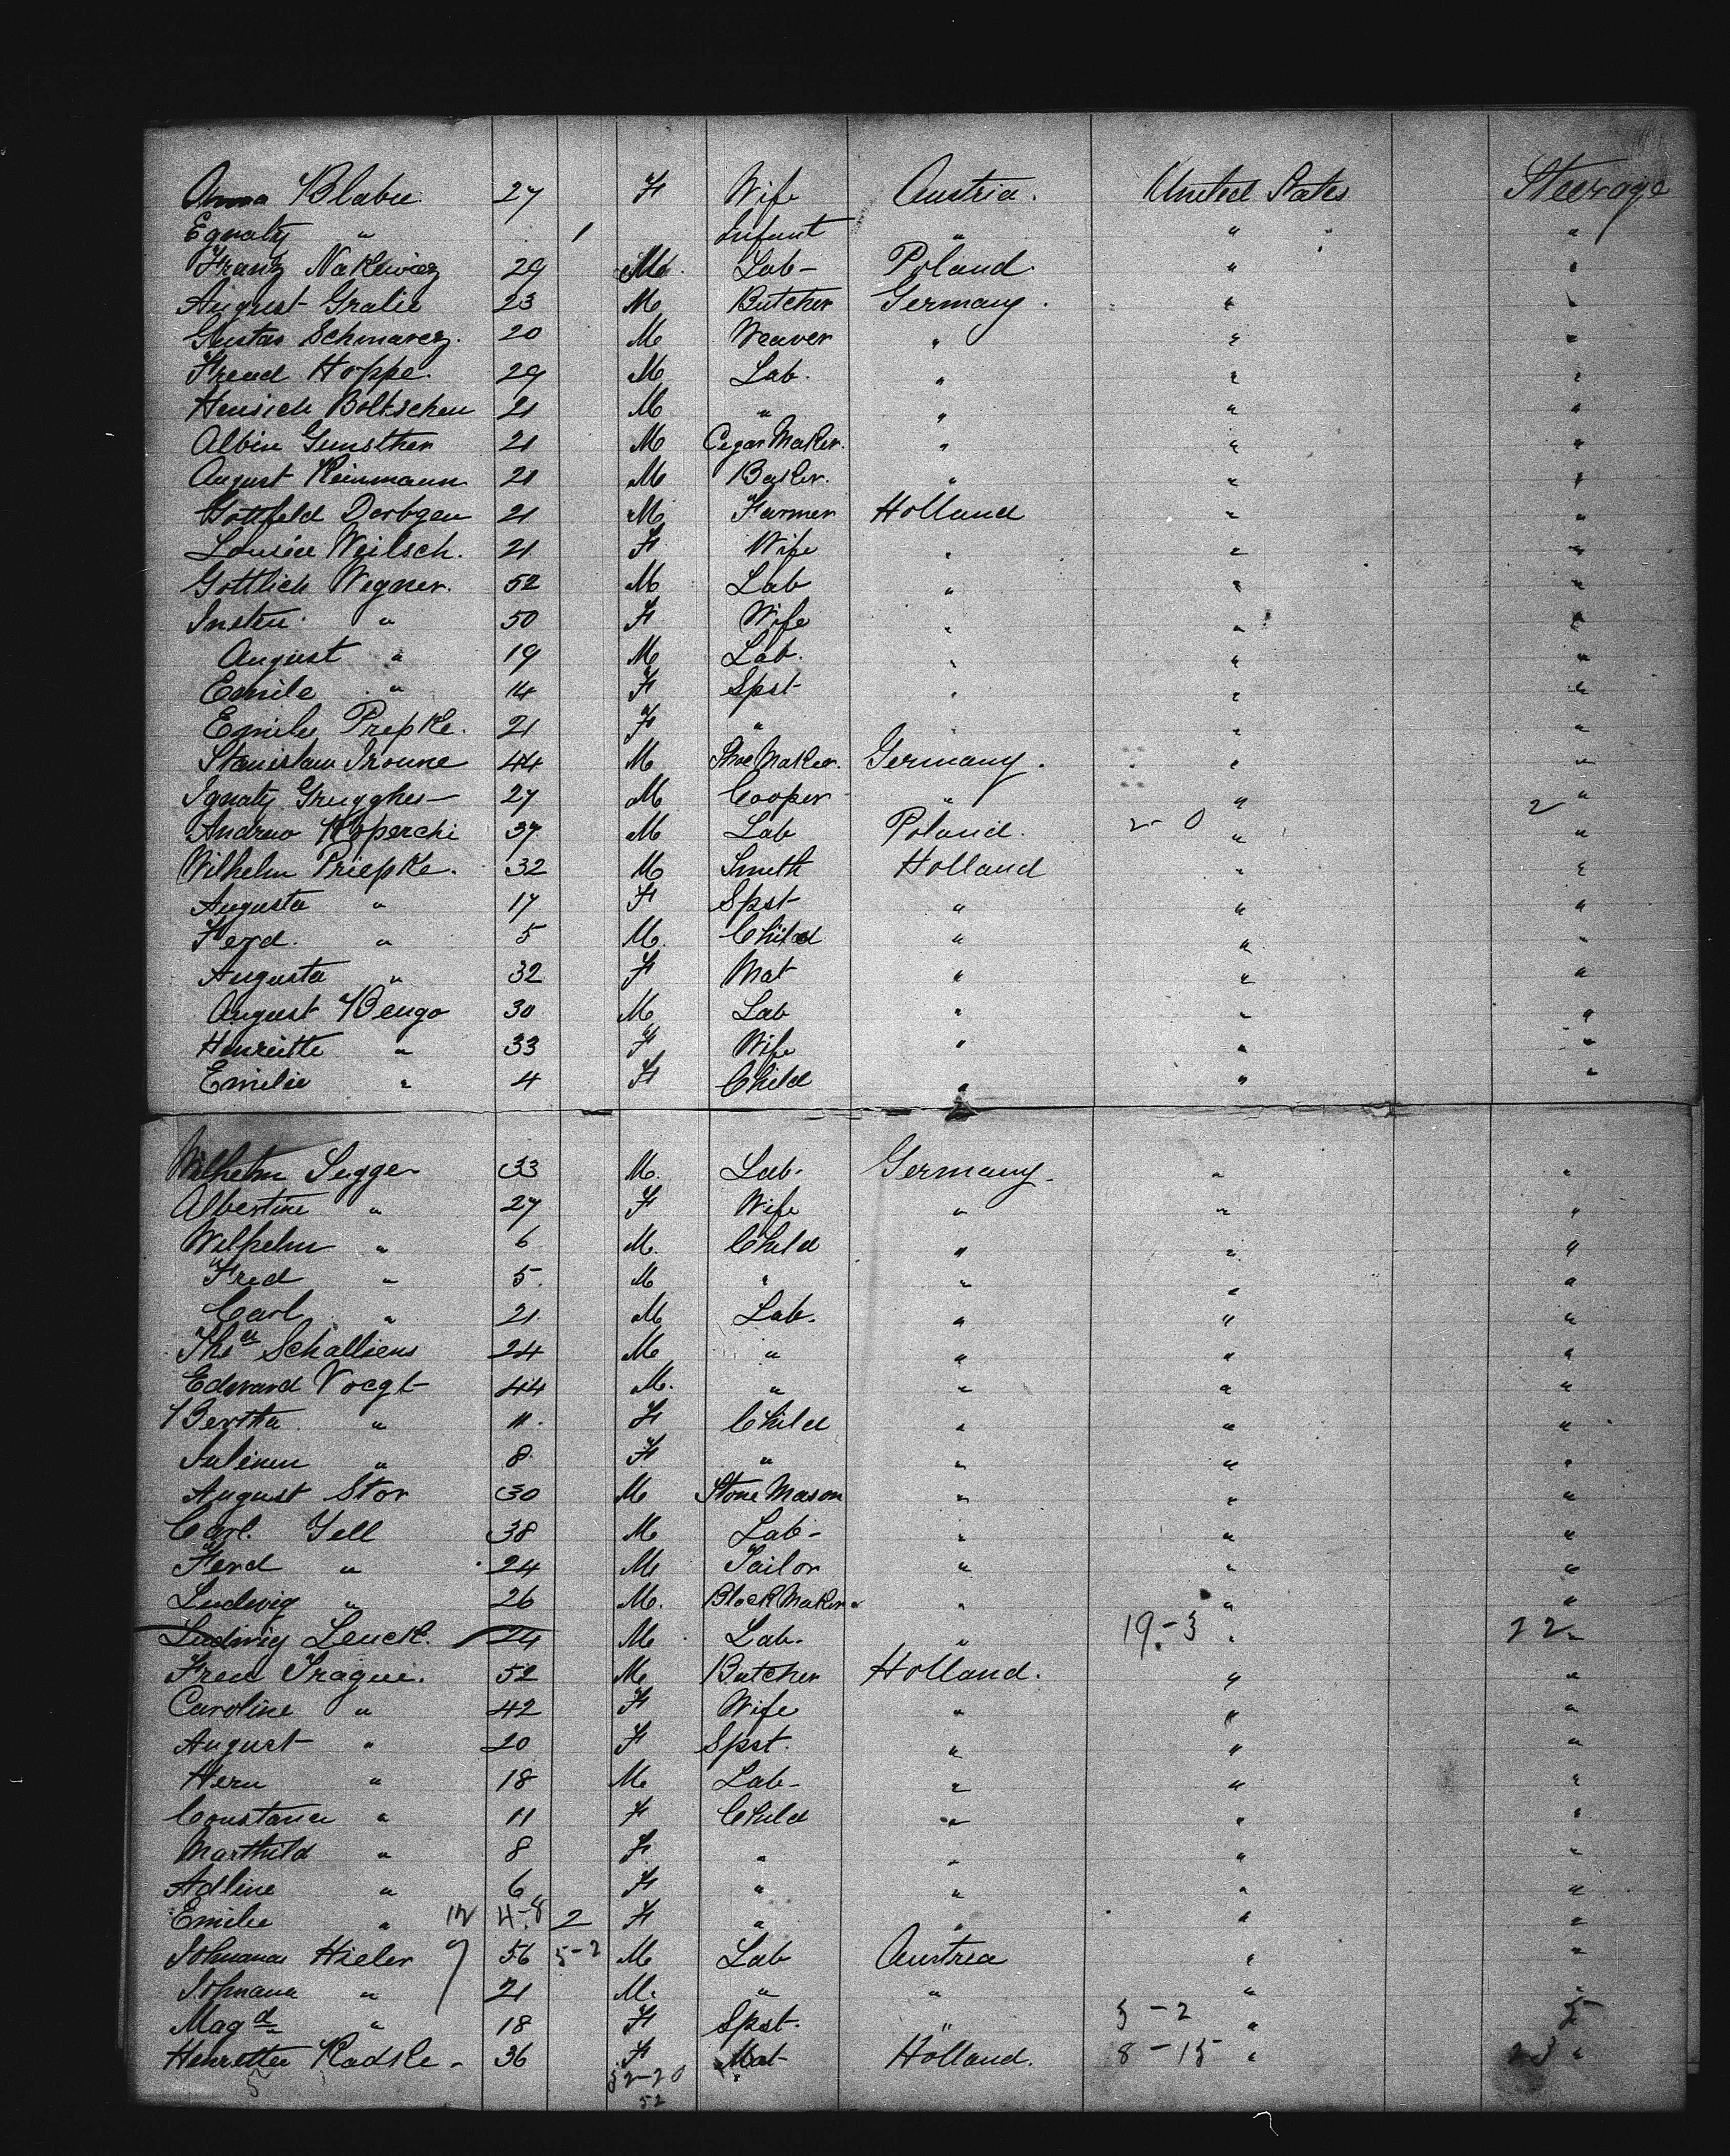 Anna Blabu. 27 F Wife Austria. United States Steerage
Egnatz " 1 Infant " " "
Franz Nakewicz 29 M. Lab- Poland. " "
August Gralie 23 M Butcher Germany. " "
Gustav Schmarez. 20 M Weaver " " "
Freud Hoppe. 29 M Lab. " " "
Heusich Boltschen 21 M " " " "
Albin Gunsther 21 M Cegar Maker. " " "
August Reinmann 21 M Baker. " " "
Gottfeld Derbgen 21 M Farmer Holland " "
Lousie Weilsch. 21 F Wife " " "
Gottlieb Wegner. 52 M Lab " " "
Insten " 50 F Wife " " "
August " 19 M Lab. " " "
Emile " 14 F Spst " " "
Emilie Prepke. 21 F " " " "
Stanislaw Troune 44 M Shoe Maker. Germany. " "
Ignatz Grugghes- 27 M Cooper " " 2 "
Andrew Koperchi 37 M Lab Poland. 2-0 " "
Wilhelm Priepke. 32 M Smith Holland " "
Augusta " 17 F Spst " " "
Ferd. " 5 M. Child " " "
Augusta " 32 F Mat " " "
August Bengo 30 M Lab " " "
Henriette " 33 F Wife " " "
Emilie " 4 F Child " " "
Wilhelm Segge- 33 M. Lab. Germany. " "
Albertine " 27 F Wife " " "
Wilhelm " 6 M. Child " " "
Fred " 5. M " " " "
Carl " 21. M Lab. " " "
Thos Schalliens 24 M " " " "
Edward Voegt 44 M. " " " "
Bertha " 11. F Child " " "
Julienn " 8. F " " " "
August Stor 30 M Stone Mason " " "
Carl. Yell 38 M Lab- " " "
Ferd " 24 M Tailor " " "
Ludwig " 26 M. Block Maker. " " "
Ludwig Leuck. 24 M Lab. " 19-3 " 22 "
Fred Tragui. 52 M Butcher Holland. " "
Caroline " 42 F Wife " " "
August " 20 F Spst. " " "
Hern " 18 M Lab- " " "
Constance " 11 F Child " " "
Marthild " 8 F " " " "
Adline " 6 F " " " "
Emilie " 12 4-8 2 F " " " "
Johnana Hieler 9 56 5-2 M Lab Austria " "
Johnana " 21 M. " " " "
Magd " 18 F Spst. " 5-2 " 5
Henrette Radske- 36 F Mat Holland. 8-15 " 23 "
5 52-20
52